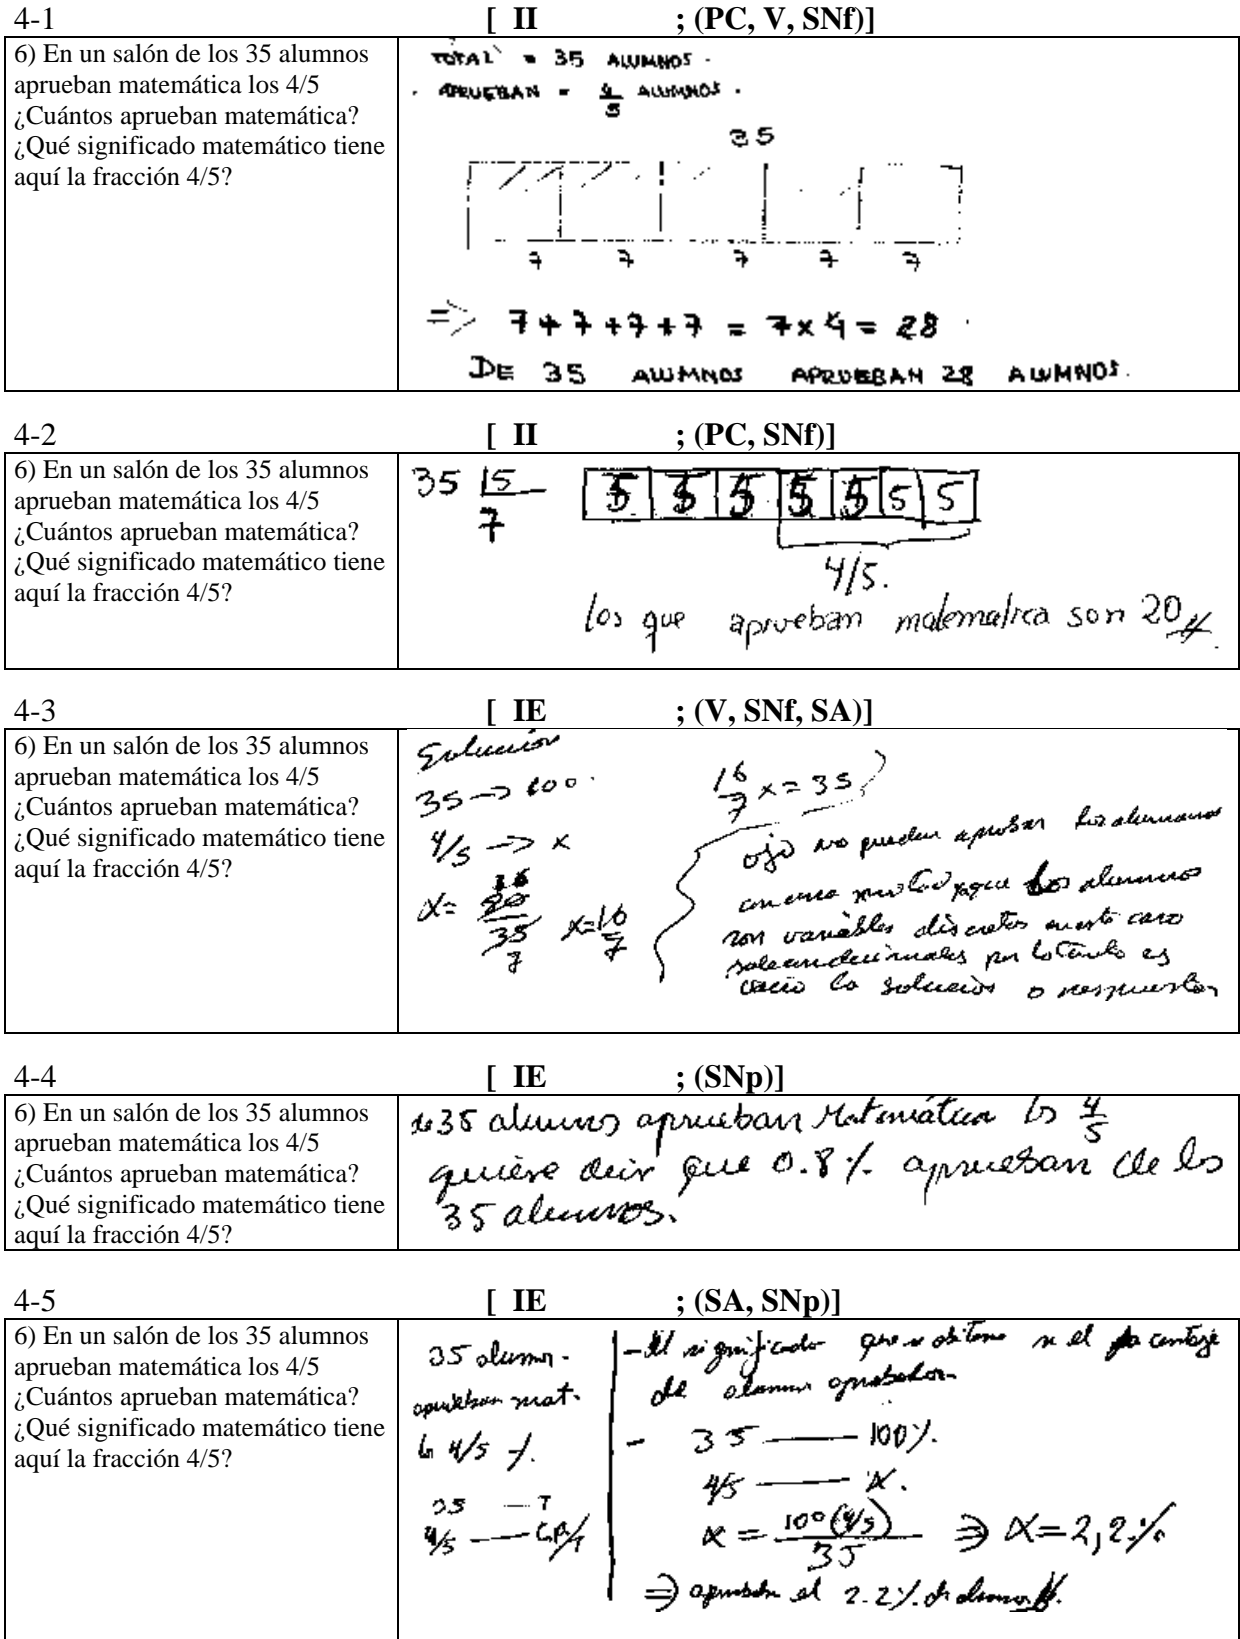 4-1 [ II ; (PC, V, SNf)]
6) En un salón de los 35 alumnos
aprueban matemática los 4/5
¿Cuántos aprueban matemática?
¿Qué significado matemático tiene
aquí la fracción 4/5?
TOTAL = 35 ALUMNOS.
. APRUEBAN = 4/5 ALUMNOS.
35
7 7 7 7 7
=> 7+7+7+7 = 7x4 = 28
DE 35 ALUMNOS APRUEBAN 28 ALUMNOS.
4-2 [ II ; (PC, SNf)]
6) En un salón de los 35 alumnos
aprueban matemática los 4/5
¿Cuántos aprueban matemática?
¿Qué significado matemático tiene
aquí la fracción 4/5?
35 |5
7
5 5 5 5 5 5 5
4/5.
los que aprueban matematica son 20
4-3 [ IE ; (V, SNf, SA)]
6) En un salón de los 35 alumnos
aprueban matemática los 4/5
¿Cuántos aprueban matemática?
¿Qué significado matemático tiene
aquí la fracción 4/5?
Solución
35 -> 100.
4/5 -> x
x= 80/35 x=16/7
16/7 x = 35
ojo no pueden aprobar los alumnos
con una los alumnos
son variables discretas en este caso
por lo tanto es
la solución o respuesta
4-4 [ IE ; (SNp)]
6) En un salón de los 35 alumnos
aprueban matemática los 4/5
¿Cuántos aprueban matemática?
¿Qué significado matemático tiene
aquí la fracción 4/5?
de 35 alumnos aprueban Matemática los 4/5
quiere decir que 0.8% aprueban de los
35 alumnos.
4-5 [ IE ; (SA, SNp)]
6) En un salón de los 35 alumnos
aprueban matemática los 4/5
¿Cuántos aprueban matemática?
¿Qué significado matemático tiene
aquí la fracción 4/5?
35 alumn.
aprueban mat.
los 4/5 %.
35 — T
4/5 —
- El significado que se obtiene es el
de alumnos aprobados.
- 35 — 100%.
4/5 — x.
x = 100(4/5)/35 => x=2,2%
=> aprueban el 2.2% de alumnos